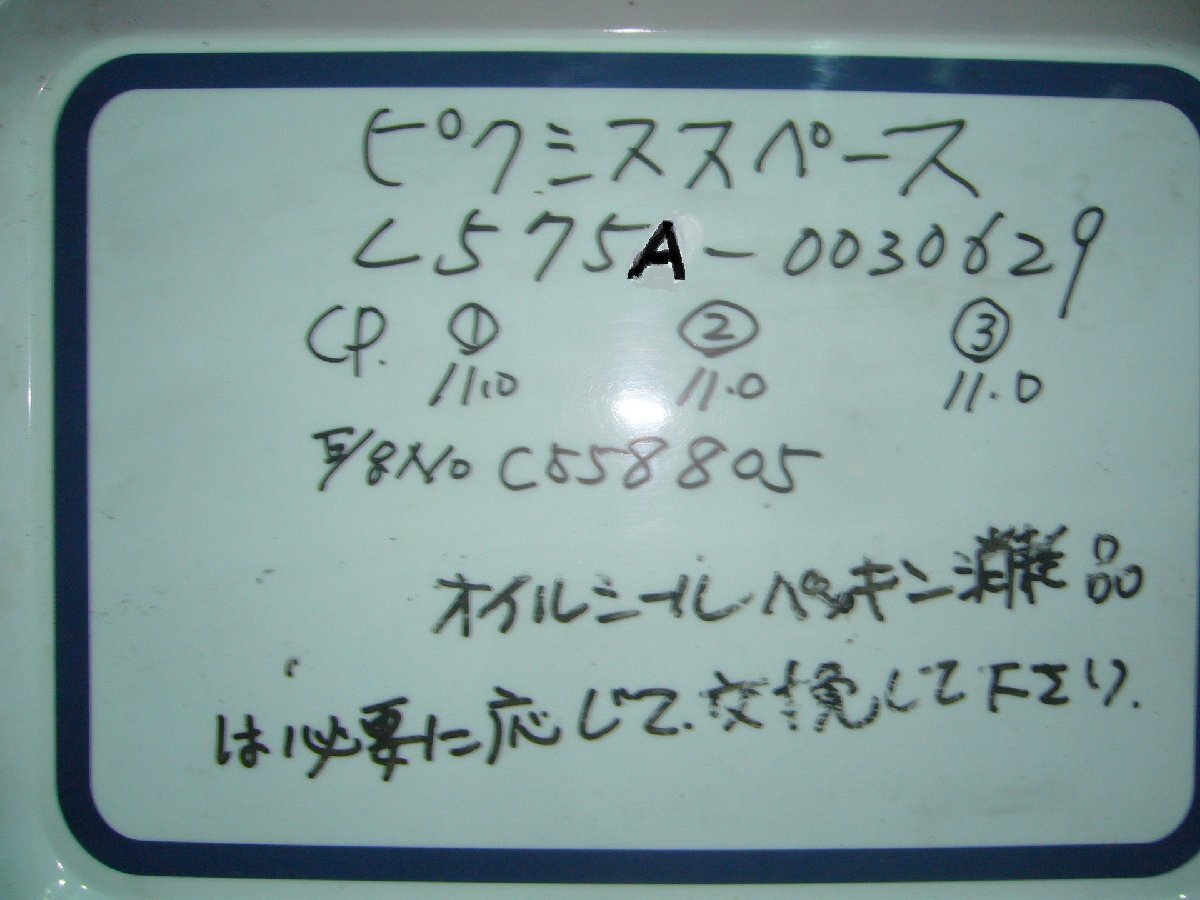 ピクシススペース
L575A-0030629
CP. ① ② ③
11.0 11.0 11.0
E/gNo C558805
オイルシール.パッキン消耗品
は必要に応じて.交換して下さい.